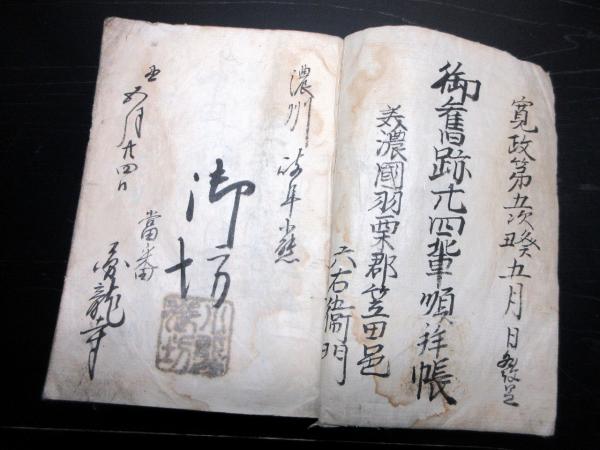 寛政第五次癸丑五月日発足
御舊跡廿四輩順拝帳
美濃國羽栗郡笠田邑
六右衛門
濃州
御坊
丑五月廿四日
當番
龍寺